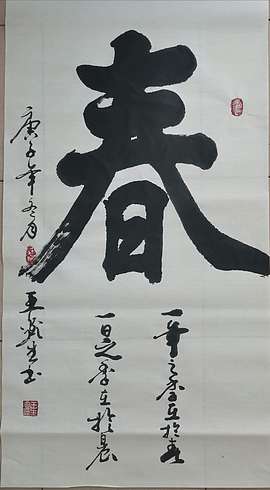 春
一年之季在於春
一日之季在於晨
庚子年冬月
王 生书